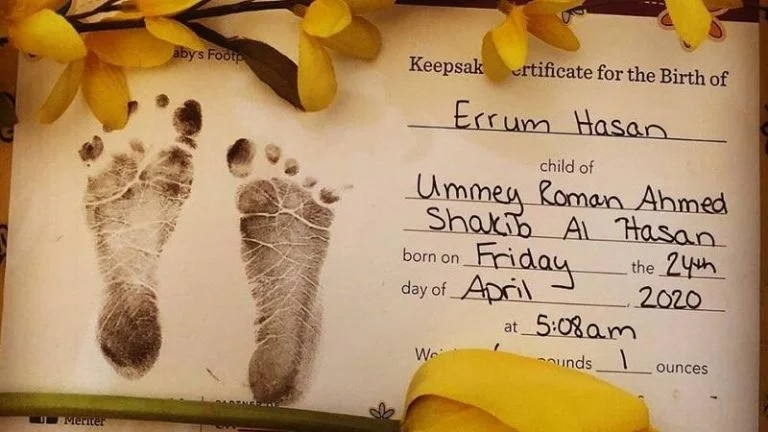 Baby's Footp
Keepsak ertificate for the Birth of
Errum Hasan
child of
Ummey Roman Ahmed
Shakib Al Hasan
born on Friday the 24th
day of April, 2020
at 5:08am
We unds 1 ounces
Meriter